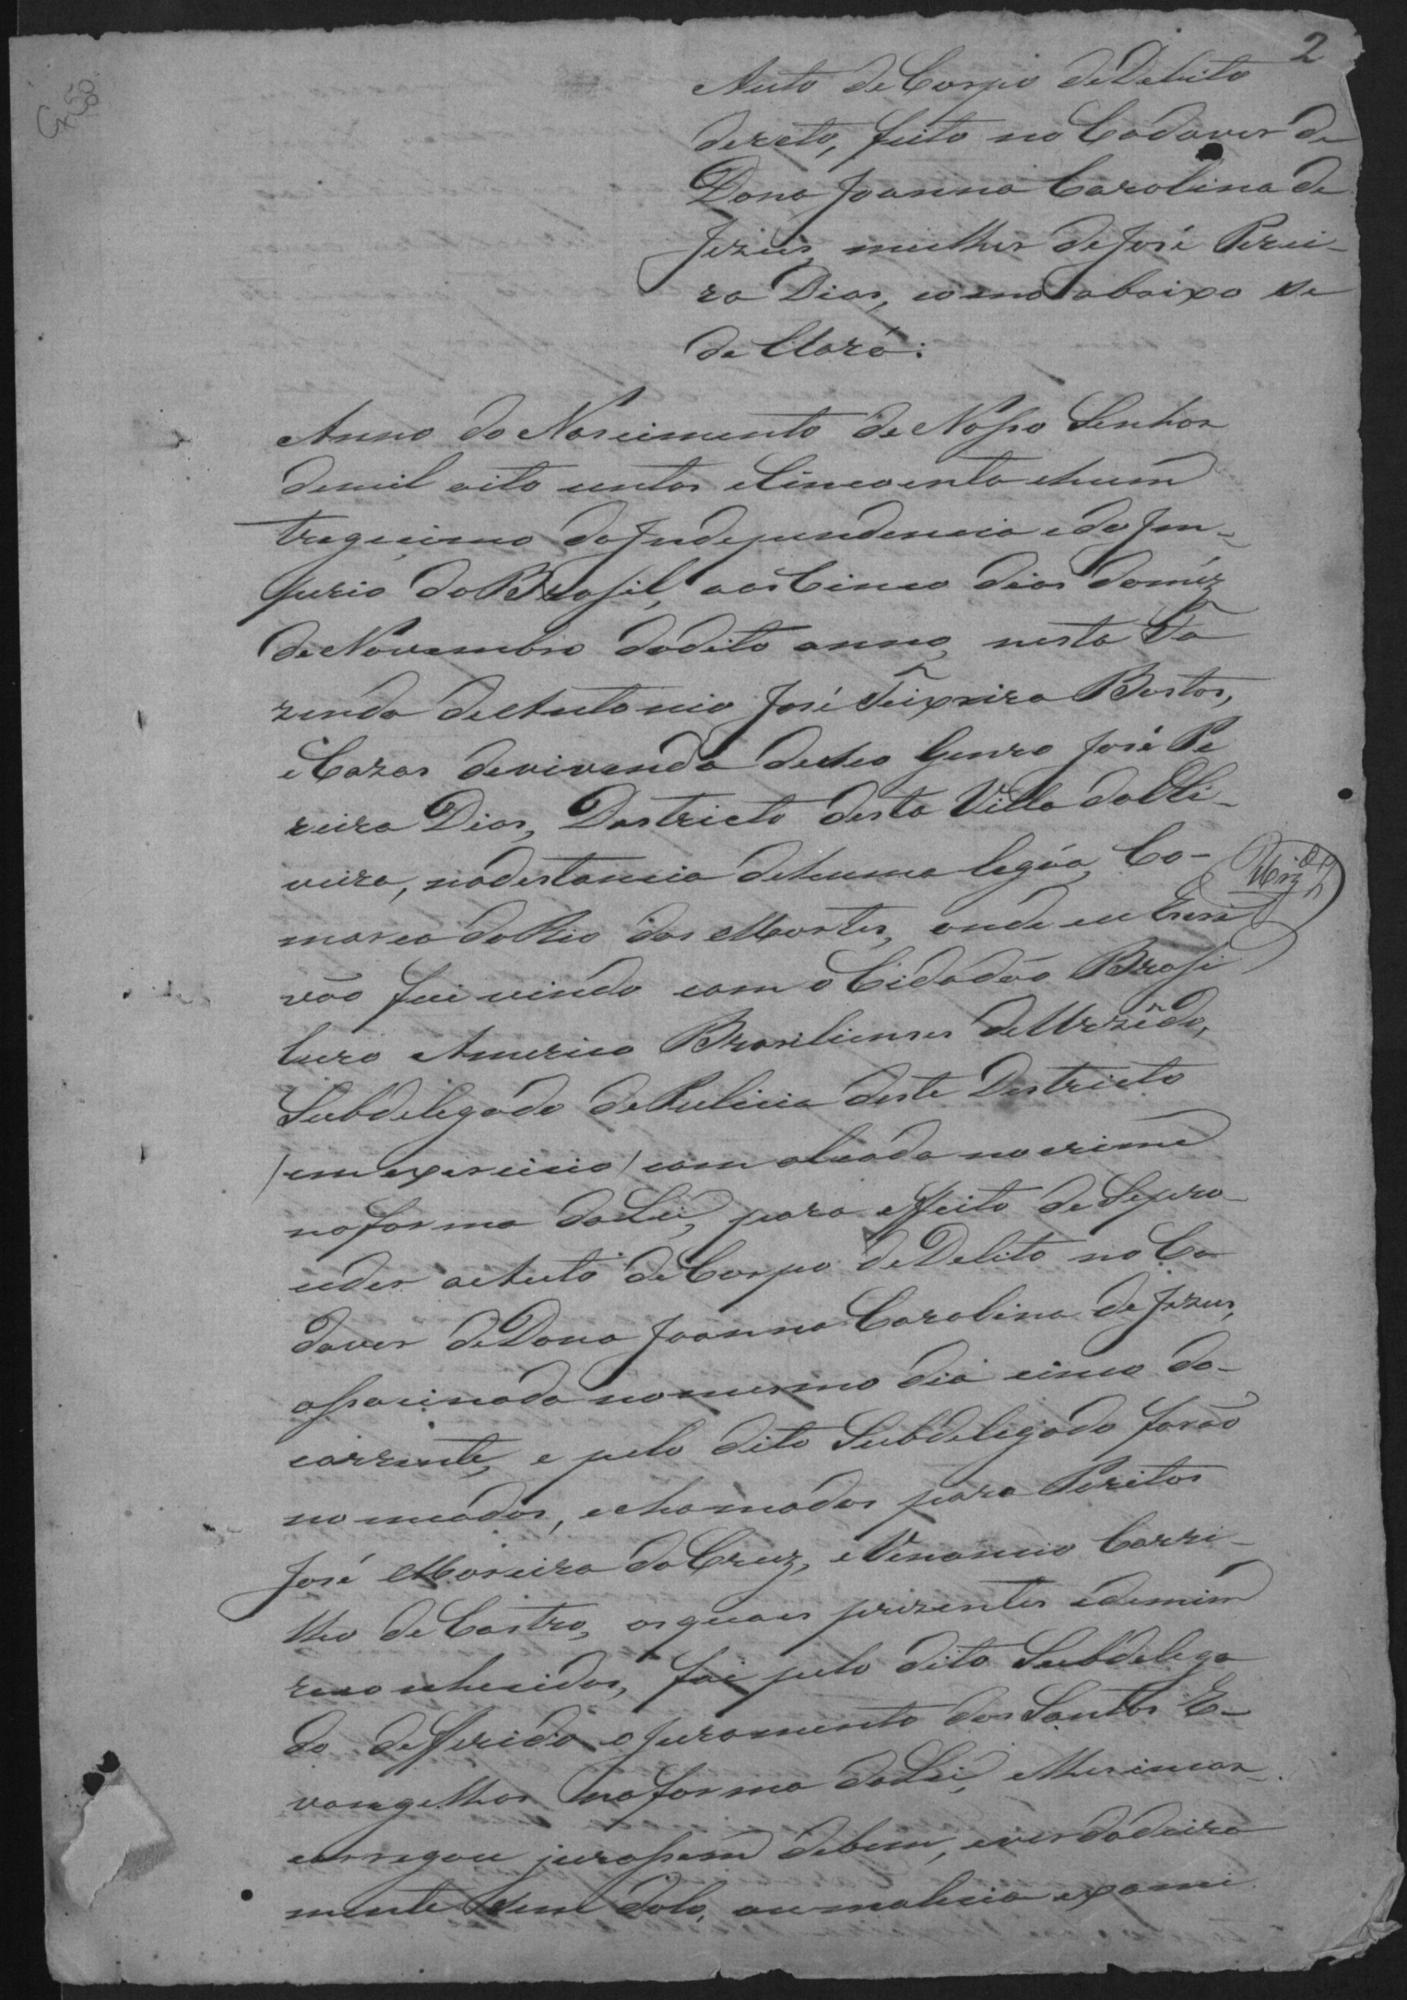 2
Auto de Corpo de Delito
dereto, feito no Cadaver de
Dona Joanna Carolina de
Jezus, mulher de José Perei-
ra Dias, como abaixo se
declara:
Anno do Nascimento de Nosso Senhor
de mil oito centos e Cincoenta e hum
tregecimo da Independencia e do Im-
perio do Brasil, aos Cinco dias do mez
de Novembro do dito anno, nesta Fa
zenda de Antonio José Teixeira Bastos,
e Cazas de vivenda de seo Genro José Pe
reira Dias, Destricto desta Villa da Oli-
veira, na destancia de huma legoa, Co-
marca do Rio das Mortes, onde eu Escri
vão fui vindo com o Cidadão Brasi
leiro Americo Brasiliense de
Subdelegado de Pulicia deste Destricto
(em exercicio) com alcada no crime
na forma da Lei, para effeito de Se pro-
ceder a Auto de Corpo de Delito no Ca
daver de Dona Joanna Carolina de Jezus,
assacinada no mesmo dia cinco do
corrente, e pelo dito Subdelegado forão
nomeados, e chamados para Peritos
José Moreira da Cruz, e Venancio Carri-
lho de Castro, os quaes prizentes e de mim
reconhecidos, foi pelo dito Subdelega
do defferido o juramento dos Santos E-
vangelhos na forma da Lei, e lhes incar-
carregou jurassem de bem, e verdadeira
mente sem dolo, ou malicia exami